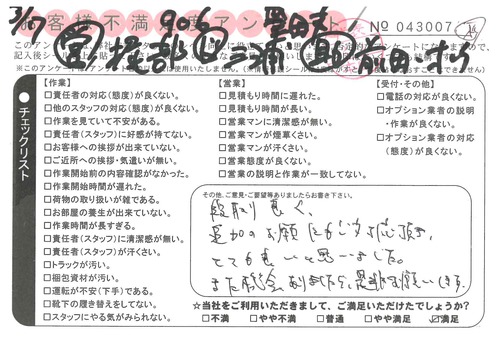 3/7
906
お客様不満足度アンケート
No 043007
堀部 三浦 前田
※このアンケートは
チェックリスト
【作業】
□責任者の対応(態度)が良くない。
□他のスタッフの対応(態度)が良くない。
□作業を見ていて不安がある。
□責任者(スタッフ)に好感が持てない。
□お客様への挨拶が出来ていない。
□ご近所への挨拶・気遣いが無い。
□作業開始前の内容確認がなかった。
□作業開始時間が遅れた。
□荷物の取り扱いが雑である。
□お部屋の養生が出来ていない。
□作業時間が長すぎる。
□責任者(スタッフ)に清潔感が無い。
□責任者(スタッフ)が汗くさい。
□トラックが汚い。
□梱包資材が汚い。
□運転が不安(下手)である。
□靴下の履き替えをしてない。
□スタッフにやる気がみられない。
【営業】
□見積もり時間に遅れた。
□見積もり時間が長い。
□営業マンに清潔感が無い。
□営業マンが煙草くさい。
□営業マンが汗くさい。
□営業態度が良くない。
□営業の説明と作業が一致してない。
【受付・その他】
□電話の対応が良くない。
□オプション業者の説明
・作業が良くない。
□オプション業者の対応
(態度)が良くない。
その他、ご意見・ご要望等ありましたらお書き下さい。
段取り良く、
追加のお願いにもご対応頂き、
とても良いと思いました。
また機会ありましたら、是非お願いします。
☆当社をご利用いただきまして、ご満足いただけたでしょうか?
□不満 □やや不満 □普通 □やや満足 ☑満足